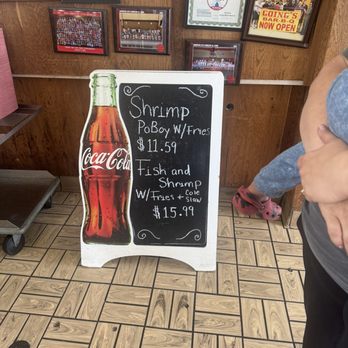 GOING'S
BAR-B-Q
NOW OPEN
Shrimp
PoBoy W/Fries
$11.59
Coca-Cola
Fish and
Shrimp
W/Fries + Cole
Slaw
$15.99